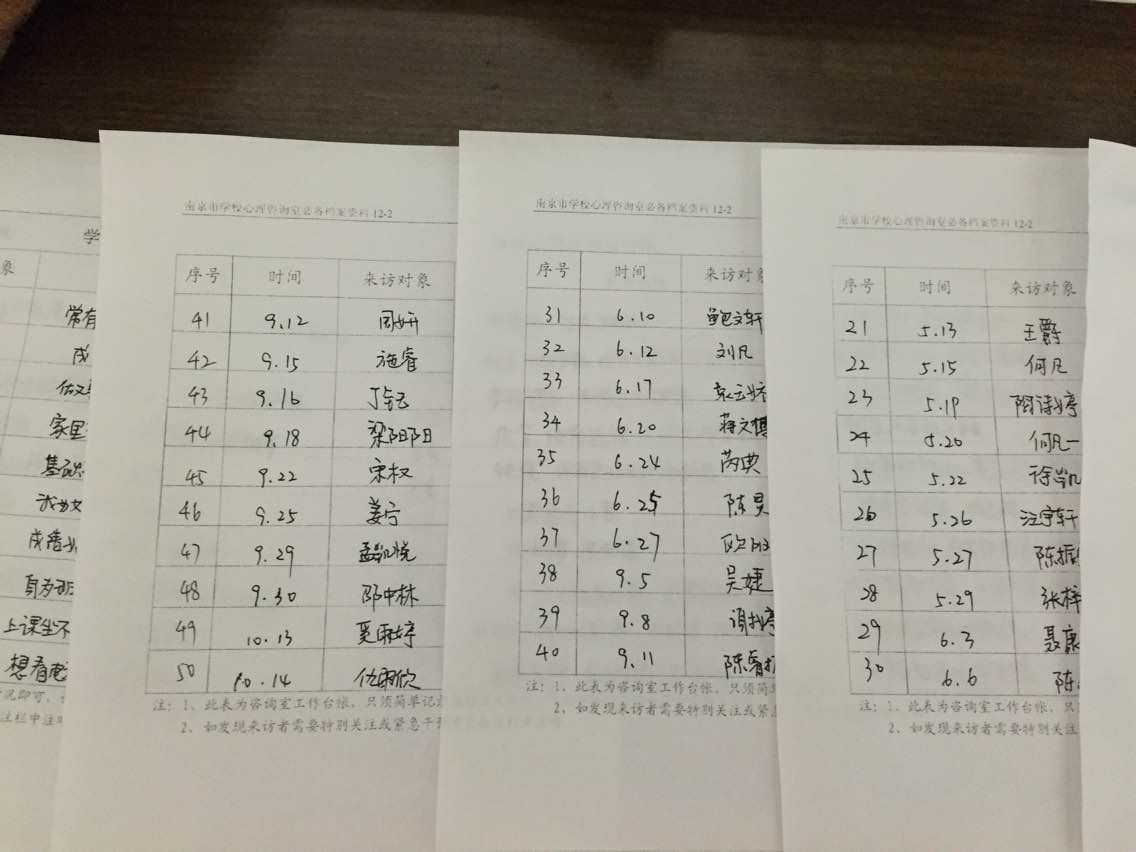 学
象
常有
成
家里
基础
成绩
上课坐不
想看电
况即可，
注栏中注明
南京市学校心理咨询室必备档案资料 12-2
序号 时间 来访对象
41 9.12 周妍
42 9.15 施睿
43 9.16 丁钰
44 9.18 梁阳阳
45 9.22 宋权
46 9.25 姜宁
47 9.29 孟凯悦
48 9.30 邵中林
49 10.13 婷
50 10.14 仇雨欣
注：1、此表为咨询室工作台帐，只须简单记录
2、如发现来访者需要特别关注或紧急干预
南京市学校心理咨询室必备档案资料 12-2
序号 时间 来访对象
31 6.10 鲍文轩
32 6.12 刘凡
33 6.17
34 6.20 蒋文博
35 6.24 芮典
36 6.25 陈昊
37 6.27
38 9.5 吴婕
39 9.8 谢
40 9.11 陈睿
注：1、此表为咨询室工作台帐，只须简单
2、如发现来访者需要特别关注或紧急
南京市学校心理咨询室必备档案资料 12-2
序号 时间 来访对象
21 5.13 王爵
22 5.15 何凡
23 5.19 陶诗婷
24 5.20 何凡一
25 5.22 徐凯
26 5.26 汪宇轩
27 5.27 陈振
28 5.29 张梓
29 6.3 聂康
30 6.6 陈
注：1、此表为咨询室工作台帐，只
2、如发现来访者需要特别关注